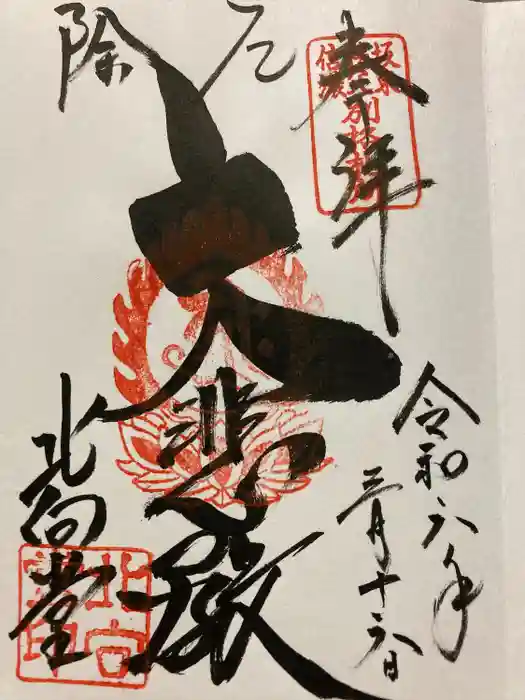 奉拝
厄
除
大悲殿
北向堂
令和六年
三月十六日